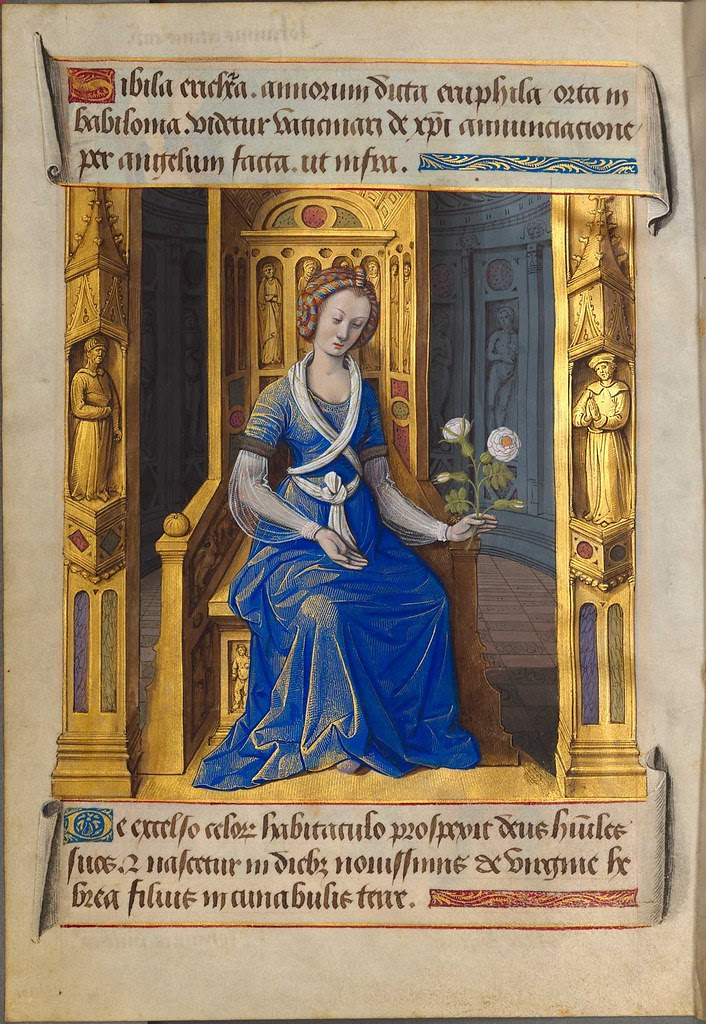 Sibila erict̃a. annorum dicta eriphila orta in
babilonia. videtur vaticinari de xp̃i annunciacione
per angelum facta. ut infra.
De excelso celoꝝ habitaculo prospexit deus hũiles
suos. ⁊ nascetur in diebꝫ novissimis de virgine he
brea filius in cunabulis terre.